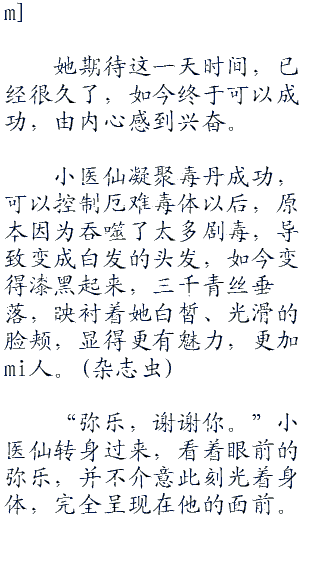 m]
她期待这一天时间，已
经很久了，如今终于可以成
功，由内心感到兴奋。
小医仙凝聚毒丹成功，
可以控制厄难毒体以后，原
本因为吞噬了太多剧毒，导
致变成白发的头发，如今变
得漆黑起来，三千青丝垂
落，映衬着她白皙、光滑的
脸颊，显得更有魅力，更加
mi人。(杂志虫)
“弥乐，谢谢你。”小
医仙转身过来，看着眼前的
弥乐，并不介意此刻光着身
体，完全呈现在他的面前。